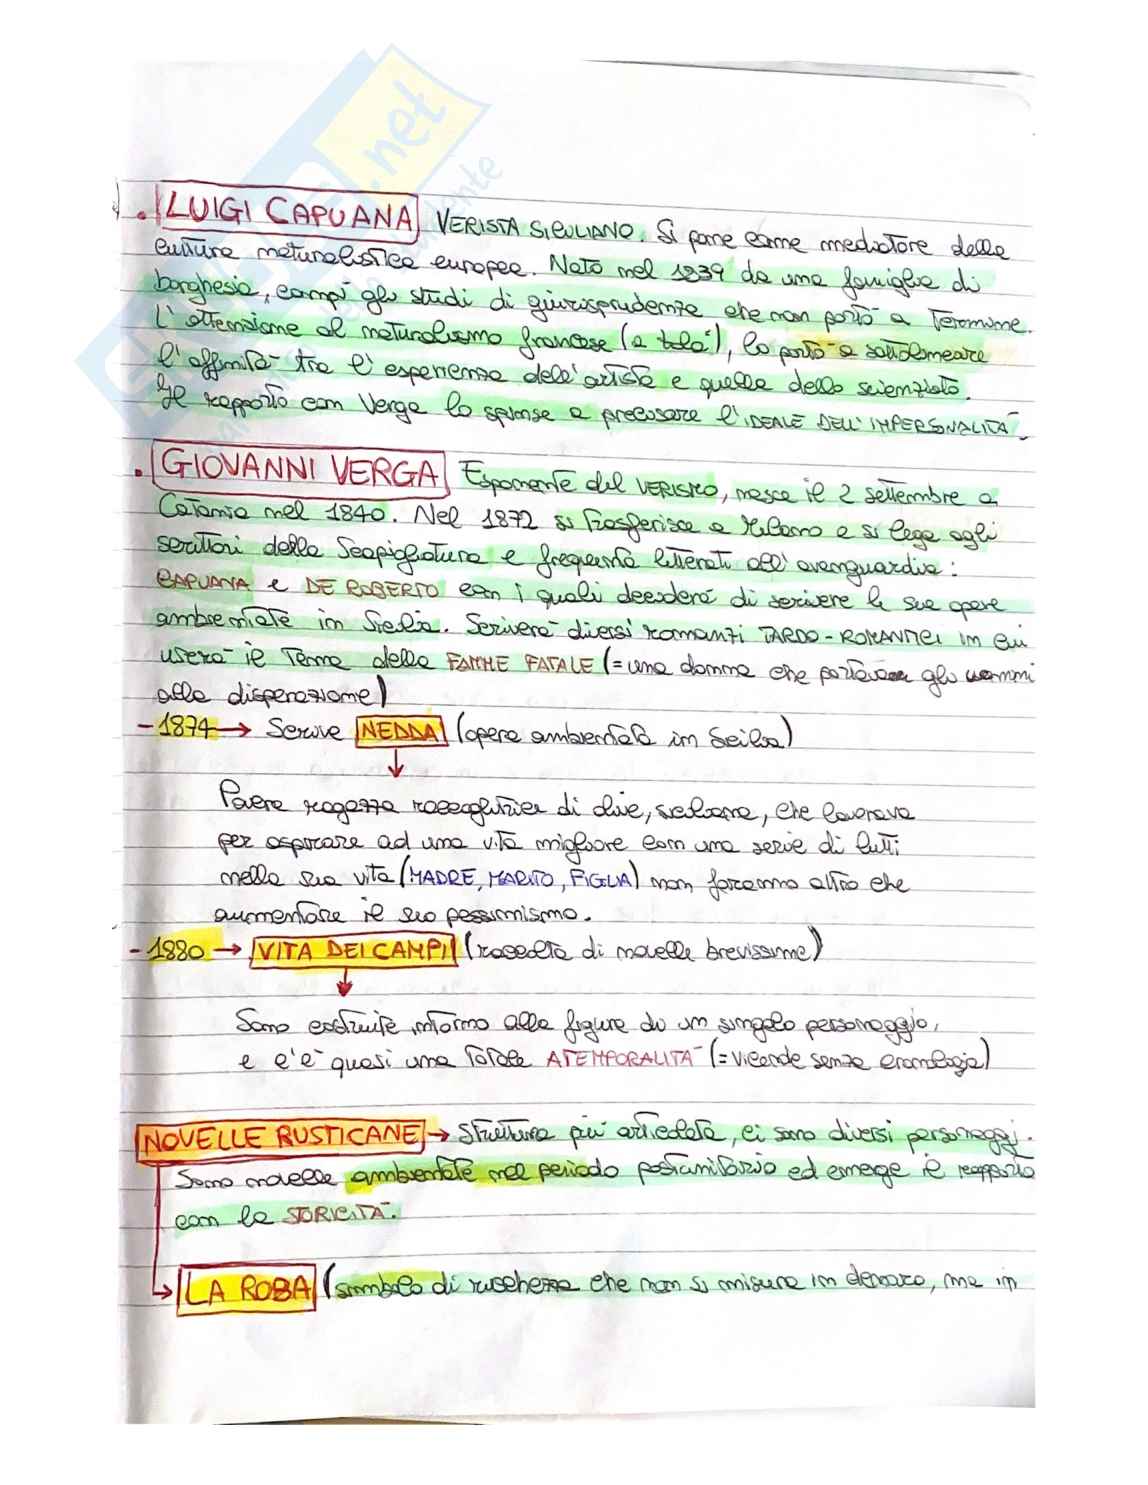 . LUIGI CAPUANA VERISTA SICILIANO. Si pone come mediatore della
cultura naturalistica europea. Nato nel 1839 da una famiglia di
borghesia, compì gli studi di giurisprudenza che non portò a Termine.
L'attenzione al naturalismo francese (a), lo portò a sottolineare
l'affinità tra l'esperienza dell'artista e quella dello scienziato.
Il rapporto con Verga lo spinse a precisare l'IDEALE DELL'IMPERSONALITÀ.
. GIOVANNI VERGA Esponente del VERISMO, nasce il 2 settembre a
Catania nel 1840. Nel 1872 si trasferisce a Milano e si lega agli
scrittori della Scapigliatura e frequenta letterati all'avanguardia:
CAPUANA e DE ROBERTO con i quali deciderà di scrivere le sue opere
ambientate in Sicilia. Scriverà diversi romanzi TARDO-ROMANTICI in cui
userà il Tema della FAMME FATALE (= una donna che portava gli uomini
alla disperazione)
- 1874 → Scrive NEDDA (opera ambientata in Sicilia)
Povera ragazza raccoglitrice di olive, siciliana, che lavorava
per aspirare ad una vita migliore con una serie di lutti
nella sua vita (MADRE, MARITO, FIGLIA) non faranno altro che
aumentare il suo pessimismo.
- 1880 → VITA DEI CAMPI (raccolta di novelle brevissime)
Sono costruite intorno alla figura di un singolo personaggio,
e c'è quasi una totale ATEMPORALITÀ (= vicende senza cronologia)
NOVELLE RUSTICANE → Struttura più articolata, ci sono diversi personaggi.
Sono novelle ambientate nel periodo postunitario ed emerge il rapporto
con la STORICITÀ.
LA ROBA (simbolo di ricchezza che non si misura in denaro, ma in
.net